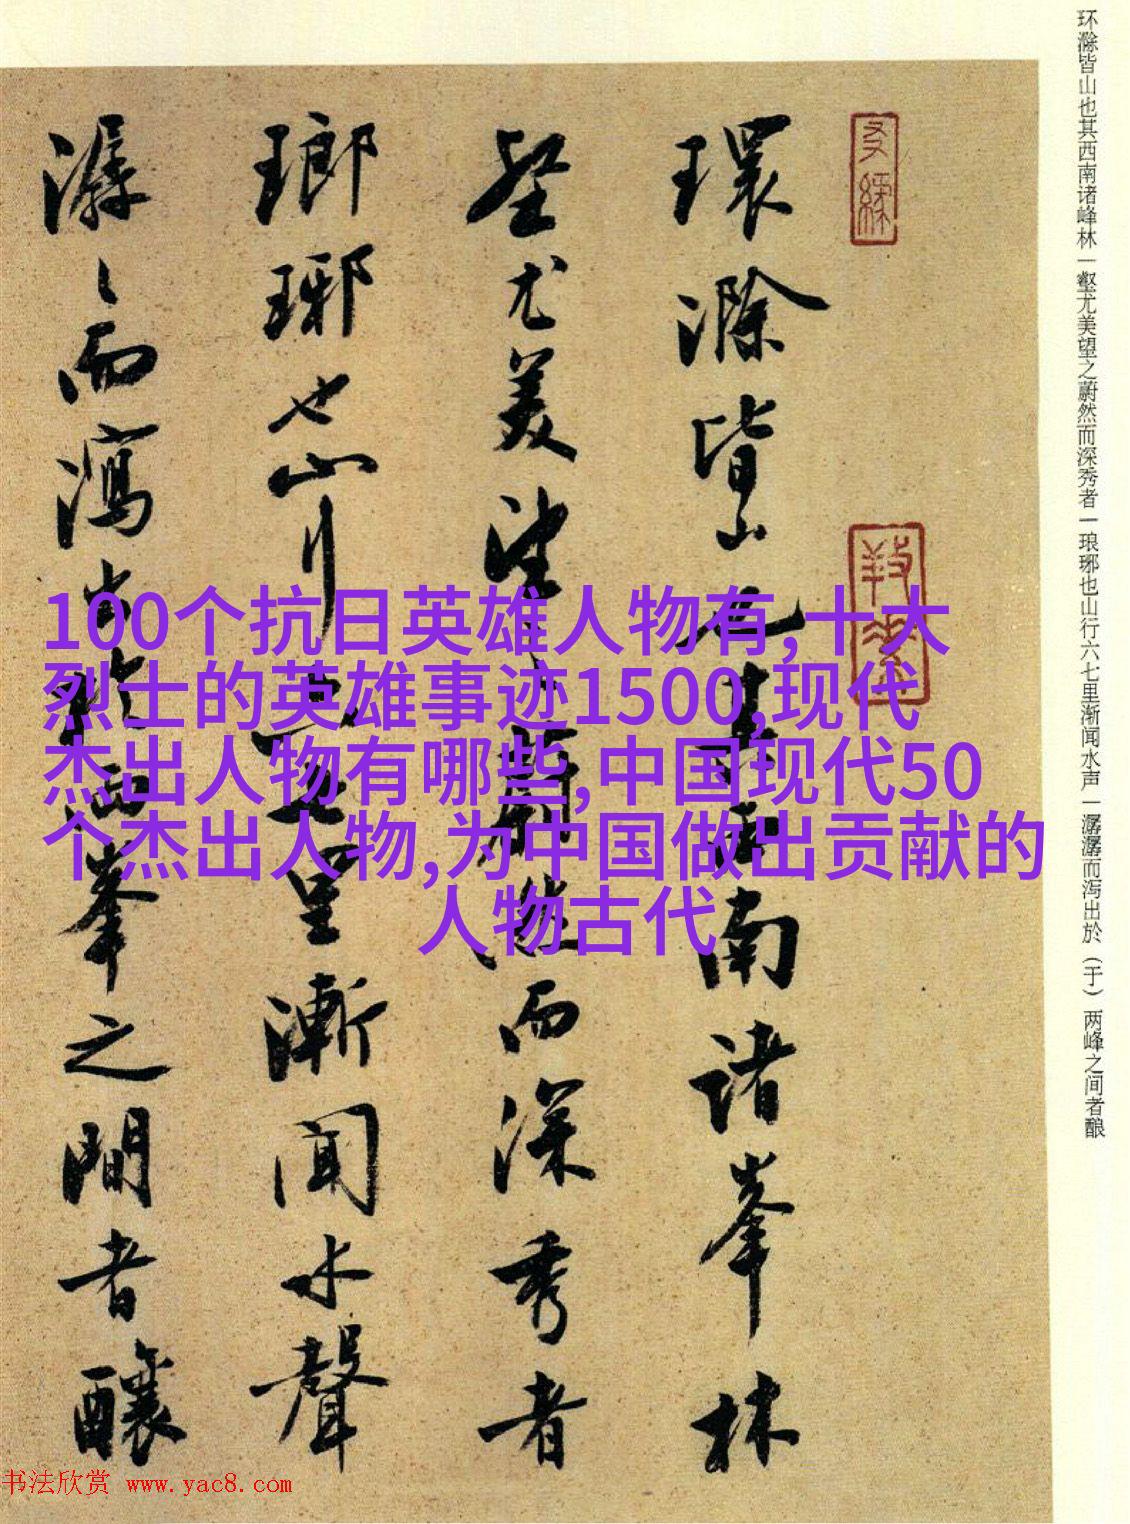 环滁皆山也其西南诸峰林一壑尤美望之蔚然而深秀者一琅琊也山行六七里渐闻水声一潺潺而泻出於（于）两峰之间者酿
環滁皆山也其西南诸峯林
壑尤美望之蔚然而深秀者
瑯琊也山行六七里漸闻水聲
潺〻而瀉出於两峯之間者釀
100个抗日英雄人物有,十大
烈士的英雄事迹1500,现代
杰出人物有哪些,中国现代50
个杰出人物,为中国做出贡献的
人物古代
书法欣赏 www.yac8.com